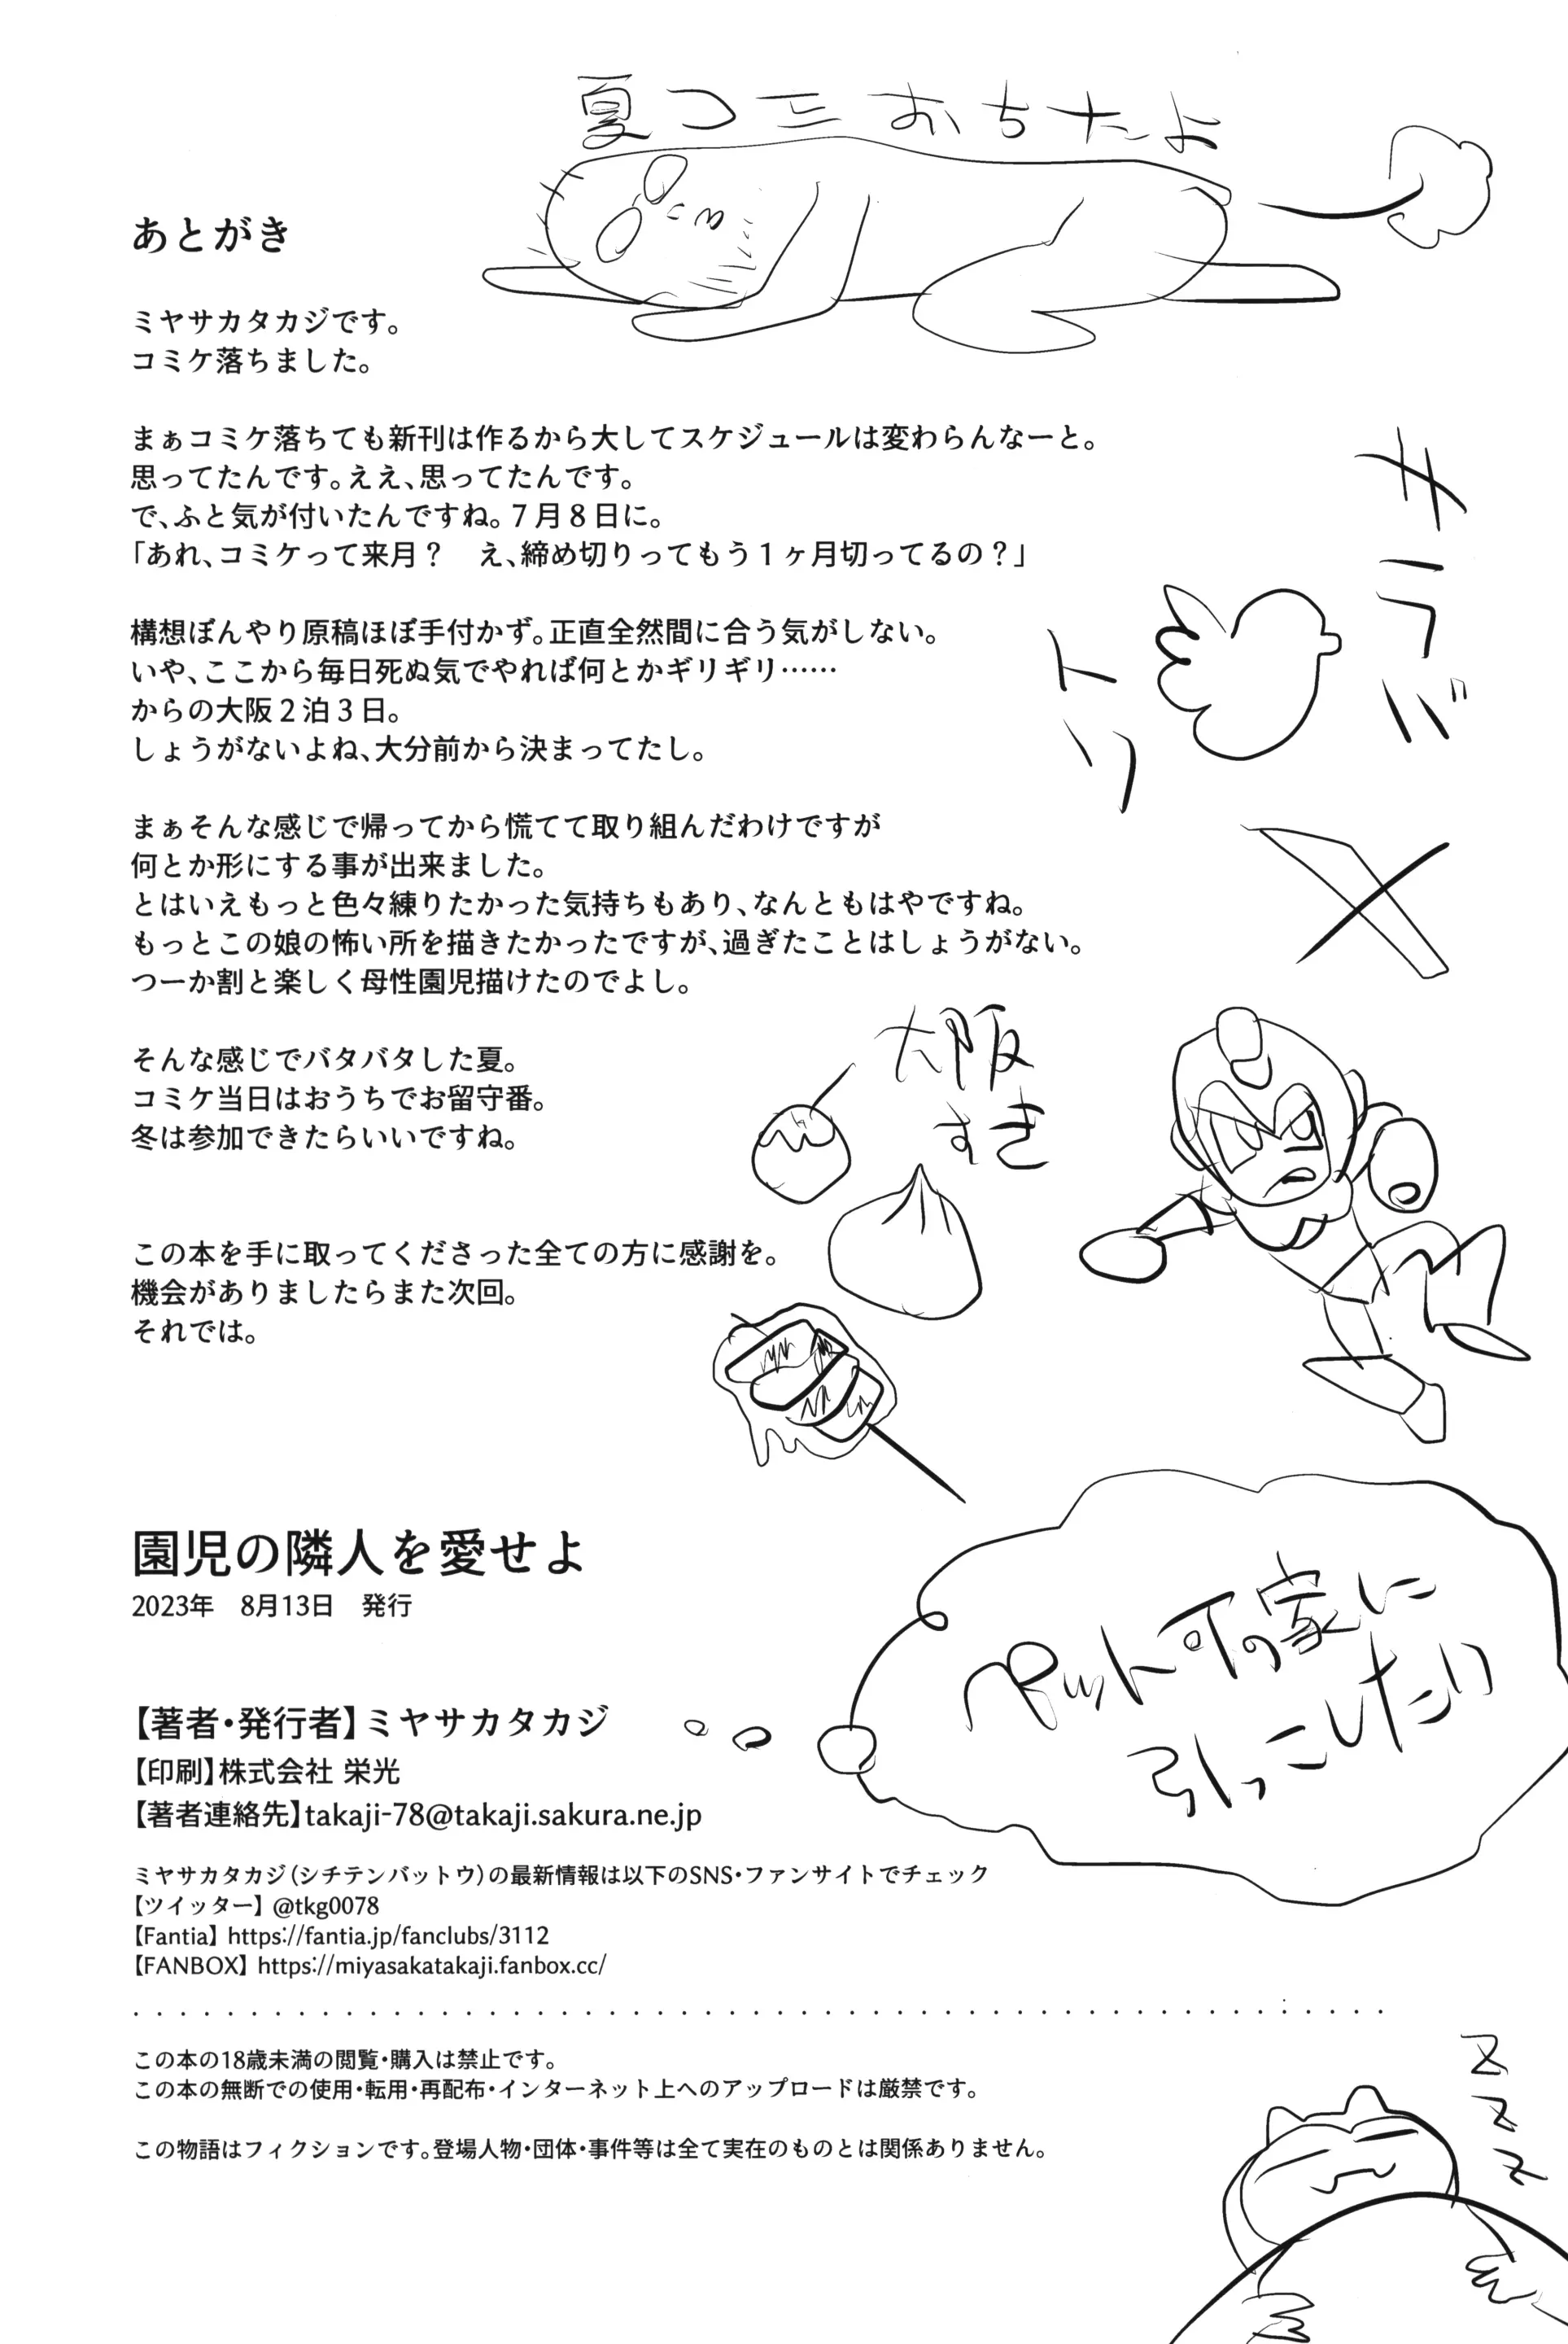 夏コミおちたよ
あとがき
ミヤサカタカジです。
コミケ落ちました。
まぁコミケ落ちても新刊は作るから大してスケジュールは変わらんなーと。
思ってたんです。ええ、思ってたんです。
で、ふと気が付いたんですね。7月8日に。
「あれ、コミケって来月？　え、締め切りってもう1ヶ月切ってるの？」
構想ぼんやり原稿ほぼ手付かず。正直全然間に合う気がしない。
いや、ここから毎日死ぬ気でやれば何とかギリギリ……
からの大阪2泊3日。
しょうがないよね、大分前から決まってたし。
まぁそんな感じで帰ってから慌てて取り組んだわけですが
何とか形にする事が出来ました。
とはいえもっと色々練りたかった気持ちもあり、なんともはやですね。
もっとこの娘の怖い所を描きたかったですが、過ぎたことはしょうがない。
つーか割と楽しく母性園児描けたのでよし。
そんな感じでバタバタした夏。
コミケ当日はおうちでお留守番。
冬は参加できたらいいですね。
この本を手に取ってくださった全ての方に感謝を。
機会がありましたらまた次回。
それでは。
サラバ
トリ
X
大阪
すき
園児の隣人を愛せよ
2023年　8月13日　発行
ペット可の家に
引っこしたい
【著者・発行者】ミヤサカタカジ
【印刷】株式会社 栄光
【著者連絡先】takaji-78@takaji.sakura.ne.jp
ミヤサカタカジ（シチテンバットウ）の最新情報は以下のSNS・ファンサイトでチェック
【ツイッター】@tkg0078
【Fantia】https://fantia.jp/fanclubs/3112
【FANBOX】https://miyasakatakaji.fanbox.cc/
この本の18歳未満の閲覧・購入は禁止です。
この本の無断での使用・転用・再配布・インターネット上へのアップロードは厳禁です。
この物語はフィクションです。登場人物・団体・事件等は全て実在のものとは関係ありません。
zzz